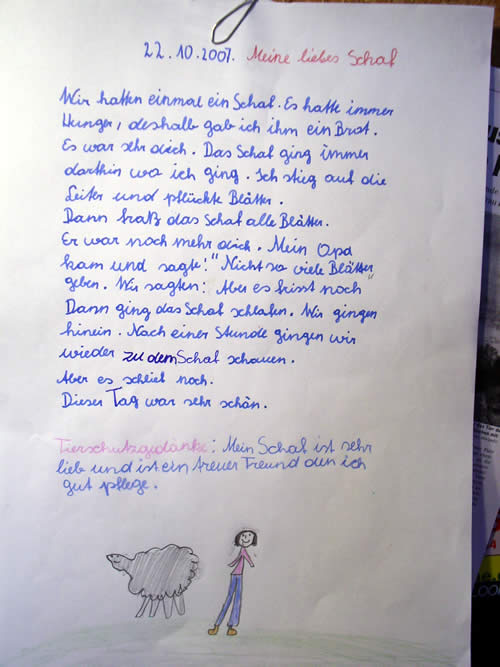 22.10.2007. Meine liebes Schaf
Wir hatten einmal ein Schaf. Es hatte immer
Hunger, deshalb gab ich ihm ein Brot.
Es war sehr dick. Das Schaf ging immer
dorthin wo ich ging. Ich stieg auf die
Leiter und pflückte Blätter.
Dann fraß das Schaf alle Blätter.
Er war noch mehr dick. Mein Opa
kam und sagte: "Nicht so viele Blätter"
geben. Wir sagten: Aber es frisst noch
Dann ging das Schaf schlafen. Wir gingen
hinein. Nach einer Stunde gingen wir
wieder zu dem Schaf schauen.
Aber es schlief noch.
Dieser Tag war sehr schön.
Tierschutzgedanke: Mein Schaf ist sehr
lieb und ist ein treuer Freund den ich
gut pflege.